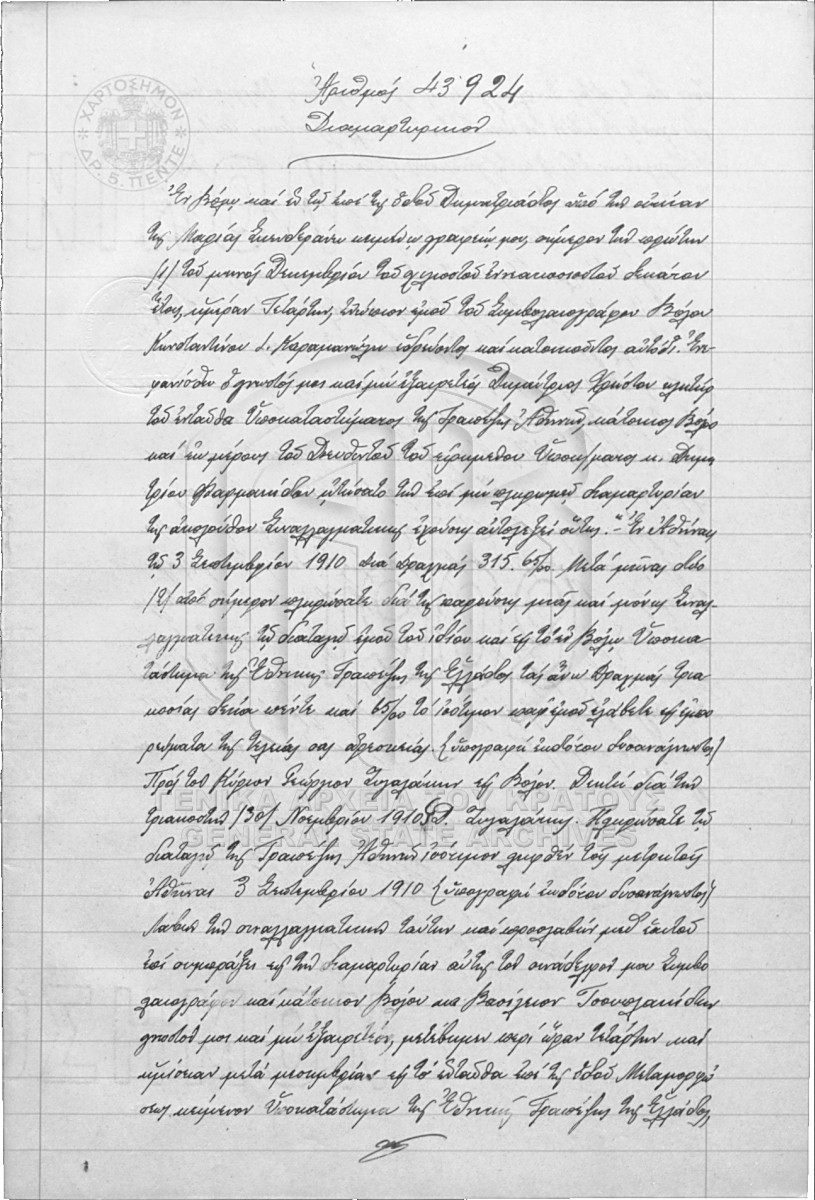 ΧΑΡΤΟΣΗΜΟΝ
ΔΡ. 5. ΠΕΝΤΕ
Ἀριθμός 43924
Διαμαρτυρικόν
Ἐν Βόλῳ καί ἐν τῷ ἐπί τῆς ὁδοῦ Δημητριάδος ὑπό τήν οἰκίαν
τῆς Μαρίας κειμένῳ γραφείῳ μου, σήμερον τήν πρώτην
/1/ τοῦ μηνός Δεκεμβρίου τοῦ χιλιοστοῦ ἐννεακοσιοστοῦ δεκάτου
ἔτους, ἡμέραν Τετάρτην, ἐνώπιον ἐμοῦ τοῦ Συμβολαιογράφου Βόλου
Κωνσταντίνου Ι. Καραμανώλη ἑδρεύοντος καί κατοικοῦντος αὐτόθι. Ἐνε-
φανίσθη ὁ γνωστός μοι καί μή ἐξαιρετέος Δημήτριος Χρήστου κλητήρ
τοῦ ἐνταῦθα Ὑποκαταστήματος τῆς Τραπέζης Ἀθηνῶν, κάτοικος Βόλου
καί ἐκ μέρους τοῦ Διευθυντοῦ τοῦ εἰρημένου Ὑποκ/ματος κ. Δημη
τρίου Φαρμακίδου ᾐτήσατο τήν ἐπί μή πληρωμῇ διαμαρτυρίαν
τῆς ἀκολούθου Συναλλαγματικῆς ἐχούσης αὐτολεξεί οὕτως. "Ἐν Ἀθήναις
τῇ 3 Σεπτεμβρίου 1910 Διά Δραχμάς 315. 65/00. Μετά μῆνας δύο
/2/ ἀπό σήμερον πληρώσατε διά τῆς παρούσης μιᾶς καί μόνης Συναλ-
λαγματικῆς τῇ διαταγῇ ἐμοῦ τοῦ ἰδίου καί εἰς τό ἐν Βόλῳ Ὑποκα
τάστημα τῆς Ἐθνικῆς Τραπέζης τῆς Ἑλλάδος τάς ἄνω Δραχμάς τρια
κοσίας δέκα πέντε καί 65/00 τό ἰσότιμον παρ' ἐμοῦ ἐλάβετε εἰς ἐμπο
ρεύματα τῆς τελείας σας ἀρεσκείας. (ὑπογραφή ἐκδότου δυσανάγνωστος)
Πρός τόν Κύριον Γεώργιον εἰς Βόλον. Δεκτή διά τήν
τριακοστήν /30/ Νοεμβρίου 1910 Πληρώσατε τῇ
διαταγῇ τῆς Τραπέζης Ἀθηνῶν ἰσότιμον ληφθέν τοῖς μετρητοῖς
Ἀθῆναι 3 Σεπτεμβρίου 1910 (ὑπογραφή ἐκδότου δυσανάγνωστος)"
Λαβών τήν συναλλαγματικήν ταύτην καί προσλαβών μεθ' ἑαυτοῦ
ἐπί συμπράξει εἰς τήν διαμαρτυρίαν αὐτῆς τόν συνάδελφόν μου Συμβο
λαιογράφον καί κάτοικον Βόλου κ. Βασίλειον
γνωστόν μοι καί μή ἐξαιρετέον, μετέβημεν περί ὥραν τετάρτην καί
ἡμίσειαν μετά μεσημβρίαν εἰς τό ἐνταῦθα ἐπί τῆς ὁδοῦ Μεταμορφώ
σεως κείμενον Ὑποκατάστημα τῆς Ἐθνικῆς Τραπέζης τῆς Ἑλλάδος,
ΓΕΝΙΚΑ ΑΡΧΕΙΑ ΤΟΥ ΚΡΑΤΟΥΣ
GENERAL STATE ARCHIVES